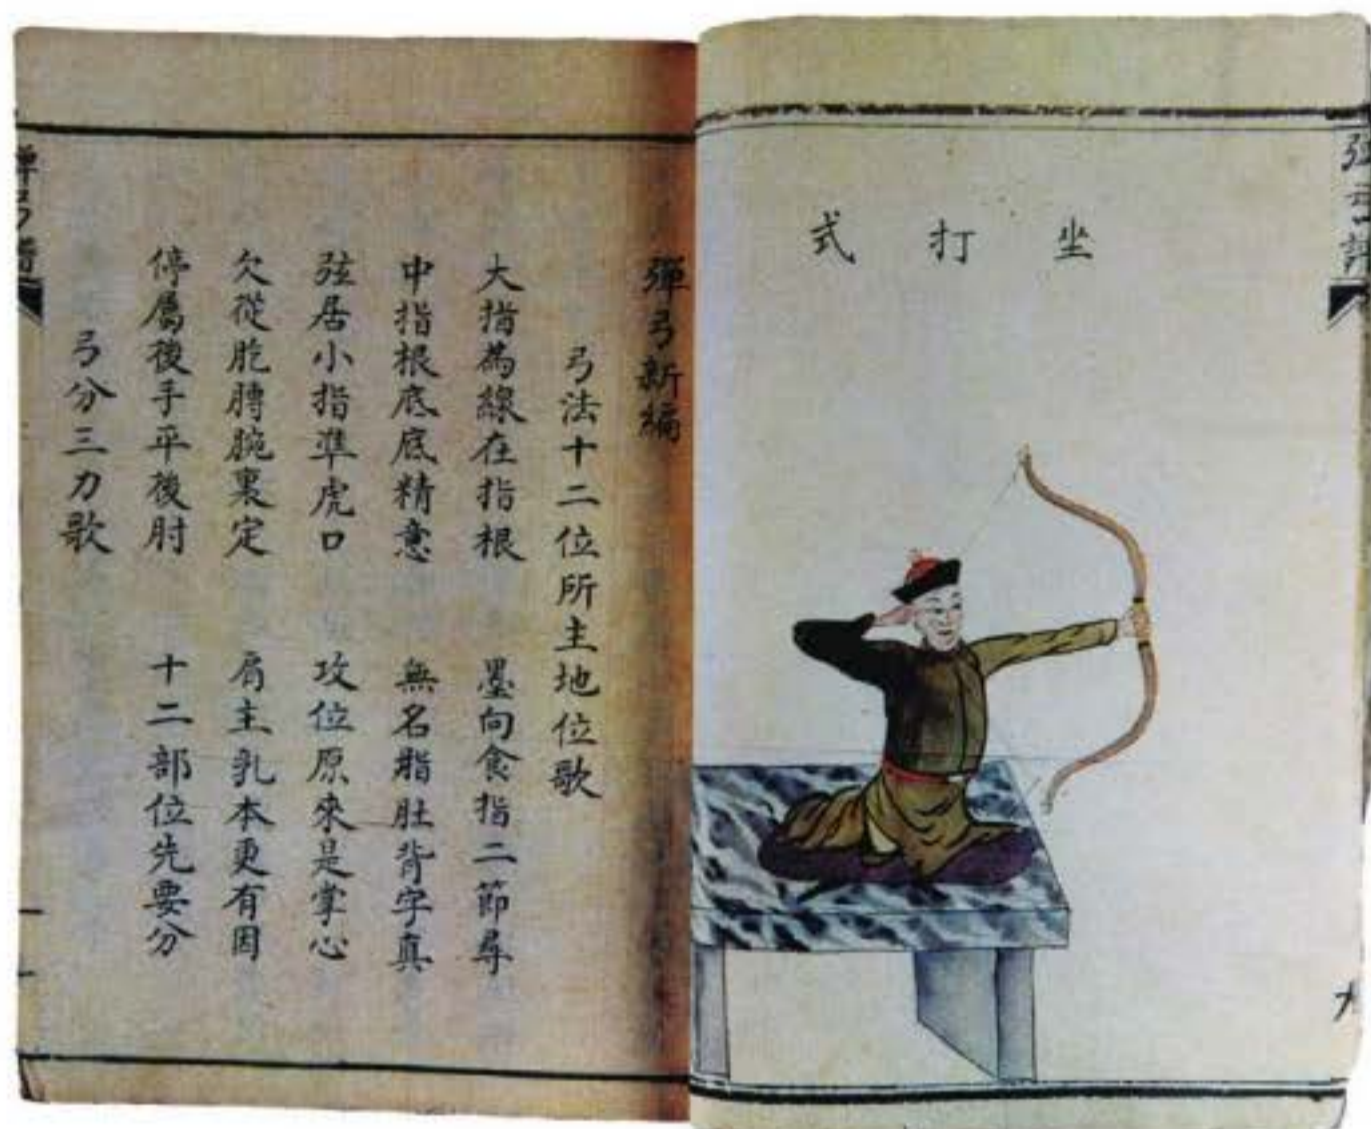 坐打式
彈弓新編
弓法十二位所主地位歌
大指為線在指根 墨向食指二節尋
中指根底底精意 無名脂肚背字真
弦居小指準虎口 攻位原來是掌心
欠從肐膊腕裏定 肩主乳本更有因
停屬後手平後肘 十二部位先要分
弓分三力歌